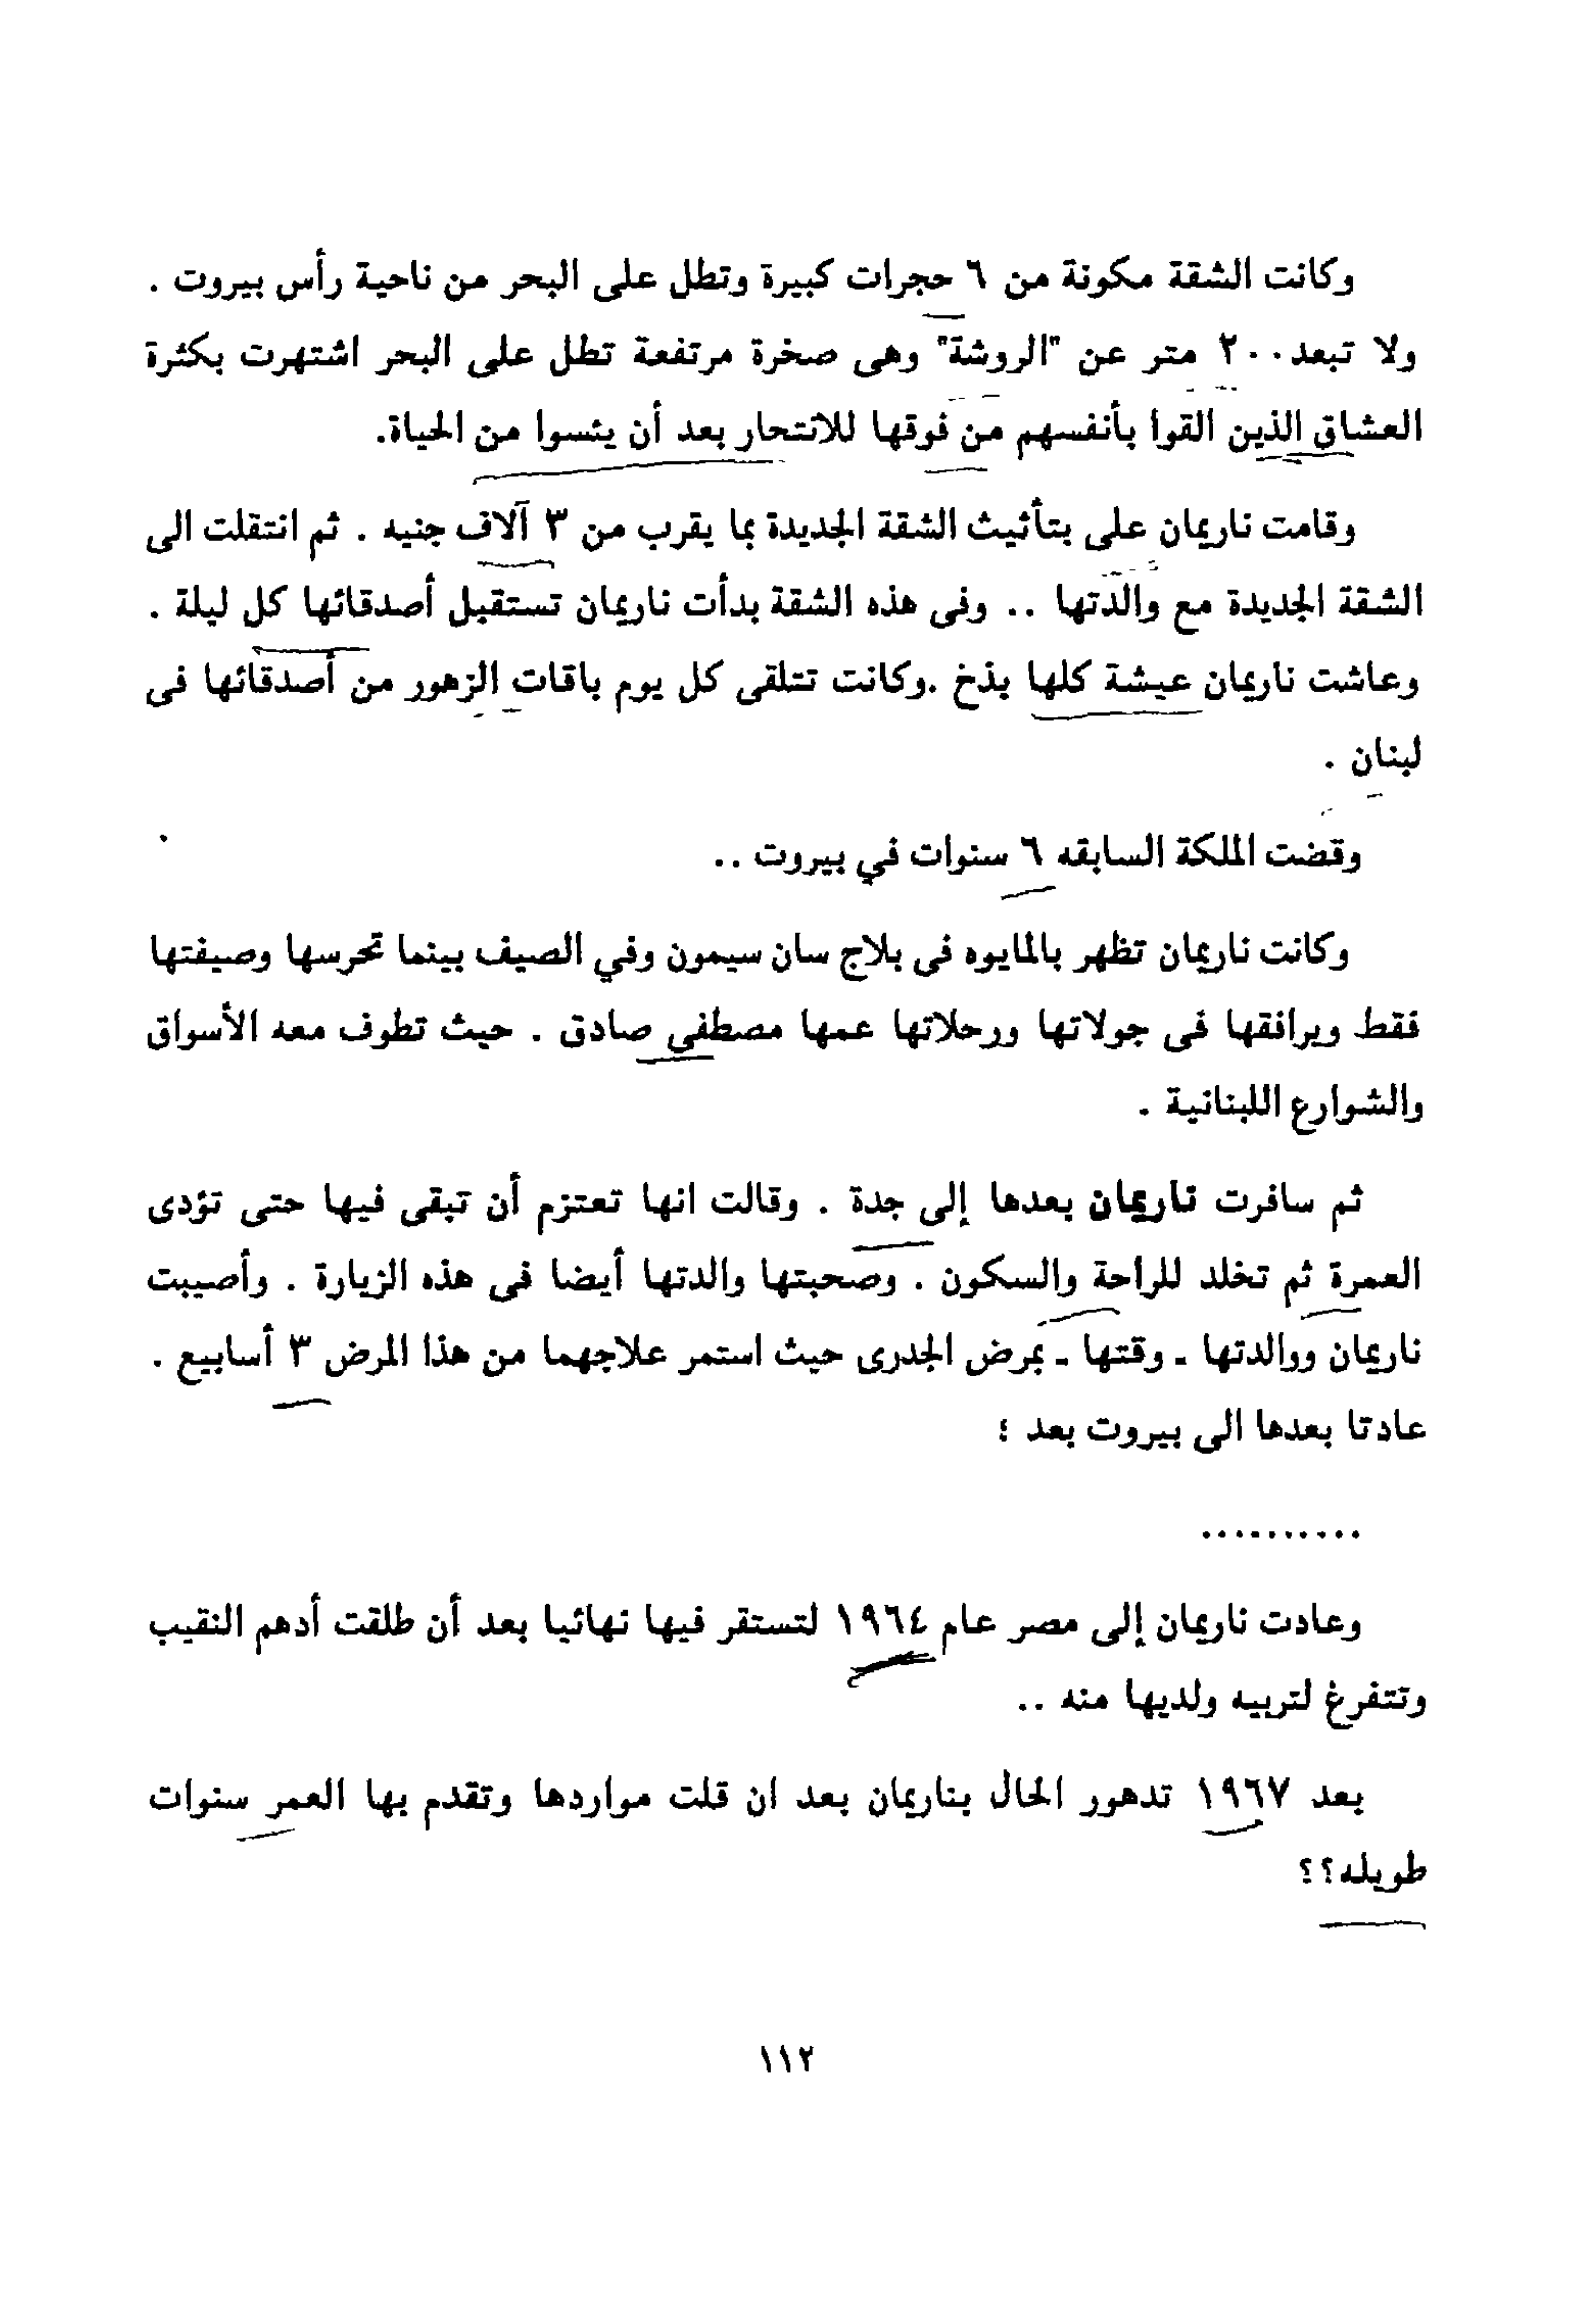 وكانت الشقة مكونة من ٦ حجرات كبيرة وتطل على البحر من ناحية رأس بيروت .
ولا تبعد ٢٠٠ متر عن "الروشة" وهى صخرة مرتفعة تطل على البحر اشتهرت بكثرة
العشاق الذين القوا بأنفسهم من فوقها للانتحار بعد أن يئسوا من الحياة.
وقامت ناريمان على بتأثيث الشقة الجديدة بما يقرب من ٣ آلاف جنيه . ثم انتقلت الى
الشقة الجديدة مع والدتها .. وفى هذه الشقة بدأت ناريمان تستقبل أصدقائها كل ليلة .
وعاشت ناريمان عيشة كلها بذخ .وكانت تتلقى كل يوم باقات الزهور من أصدقائها فى
لبنان .
وقضت الملكة السابقه ٦ سنوات في بيروت ..
وكانت ناريمان تظهر بالمايوه فى بلاج سان سيمون وفي الصيف بينما تحرسها وصيفتها
فقط ويرافقها فى جولاتها ورحلاتها عمها مصطفي صادق . حيث تطوف معه الأسواق
والشوارع اللبنانية .
ثم سافرت ناريمان بعدها إلى جدة . وقالت انها تعتزم أن تبقى فيها حتى تؤدى
العمرة ثم تخلد للراحة والسكون . وصحبتها والدتها أيضا فى هذه الزيارة . وأصيبت
ناريمان ووالدتها ـ وقتها ـ بمرض الجدرى حيث استمر علاجهما من هذا المرض ٣ أسابيع .
عادتا بعدها الى بيروت بعد ؛
..........
وعادت ناريمان إلى مصر عام ١٩٦٤ لتستقر فيها نهائيا بعد أن طلقت أدهم النقيب
وتتفرغ لتربيه ولديها منه ..
بعد ١٩٦٧ تدهور الحال بناريمان بعد ان قلت مواردها وتقدم بها العمر سنوات
طويله؟؟
١١٢